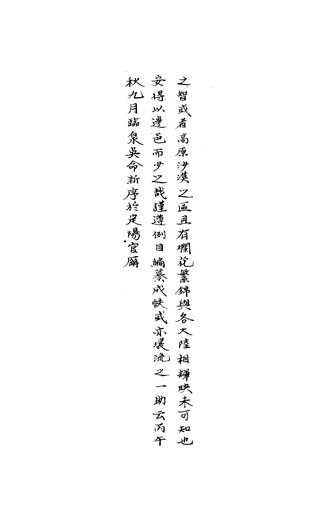 之智或者高原沙漠之區且有斕花繁錦與各大陸相輝映未可知也
安得以邊邑而少之哉謹遵例目編纂成帙或亦壤流之一助云丙午
秋九月臨泉吳命新序於定陽官廨